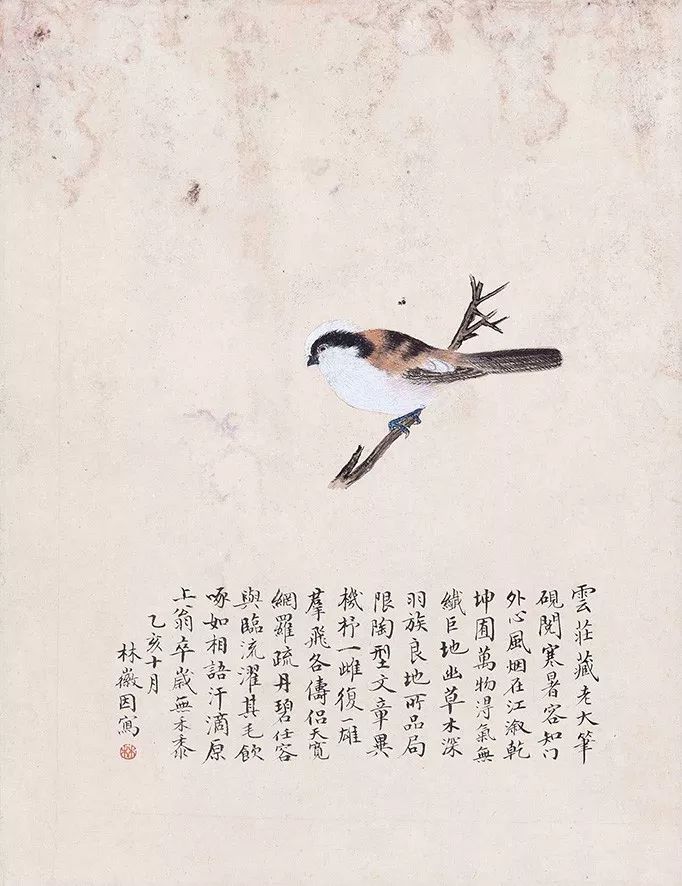 雲莊藏老大筆
硯閱寒暑容知門
外心風烟在江溆乾
坤囿萬物淂氣無
纎巨地幽草木深
羽族良地所品局
限陶型文章異
機杼一雌復一雄
羣飛各儔侣天寬
網羅疏丹碧任容
與臨流濯其毛飲
啄如相語汗滴原
上翁卒歲無禾黍
乙亥十月
林徽因寫